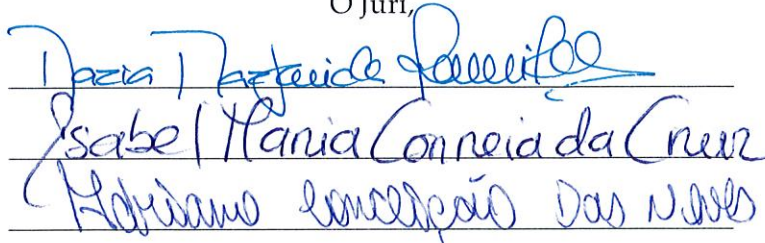 O Júri,
Maria Margarida
Isabel Maria Correia da Cruz
Adriano Conceição Das Neves